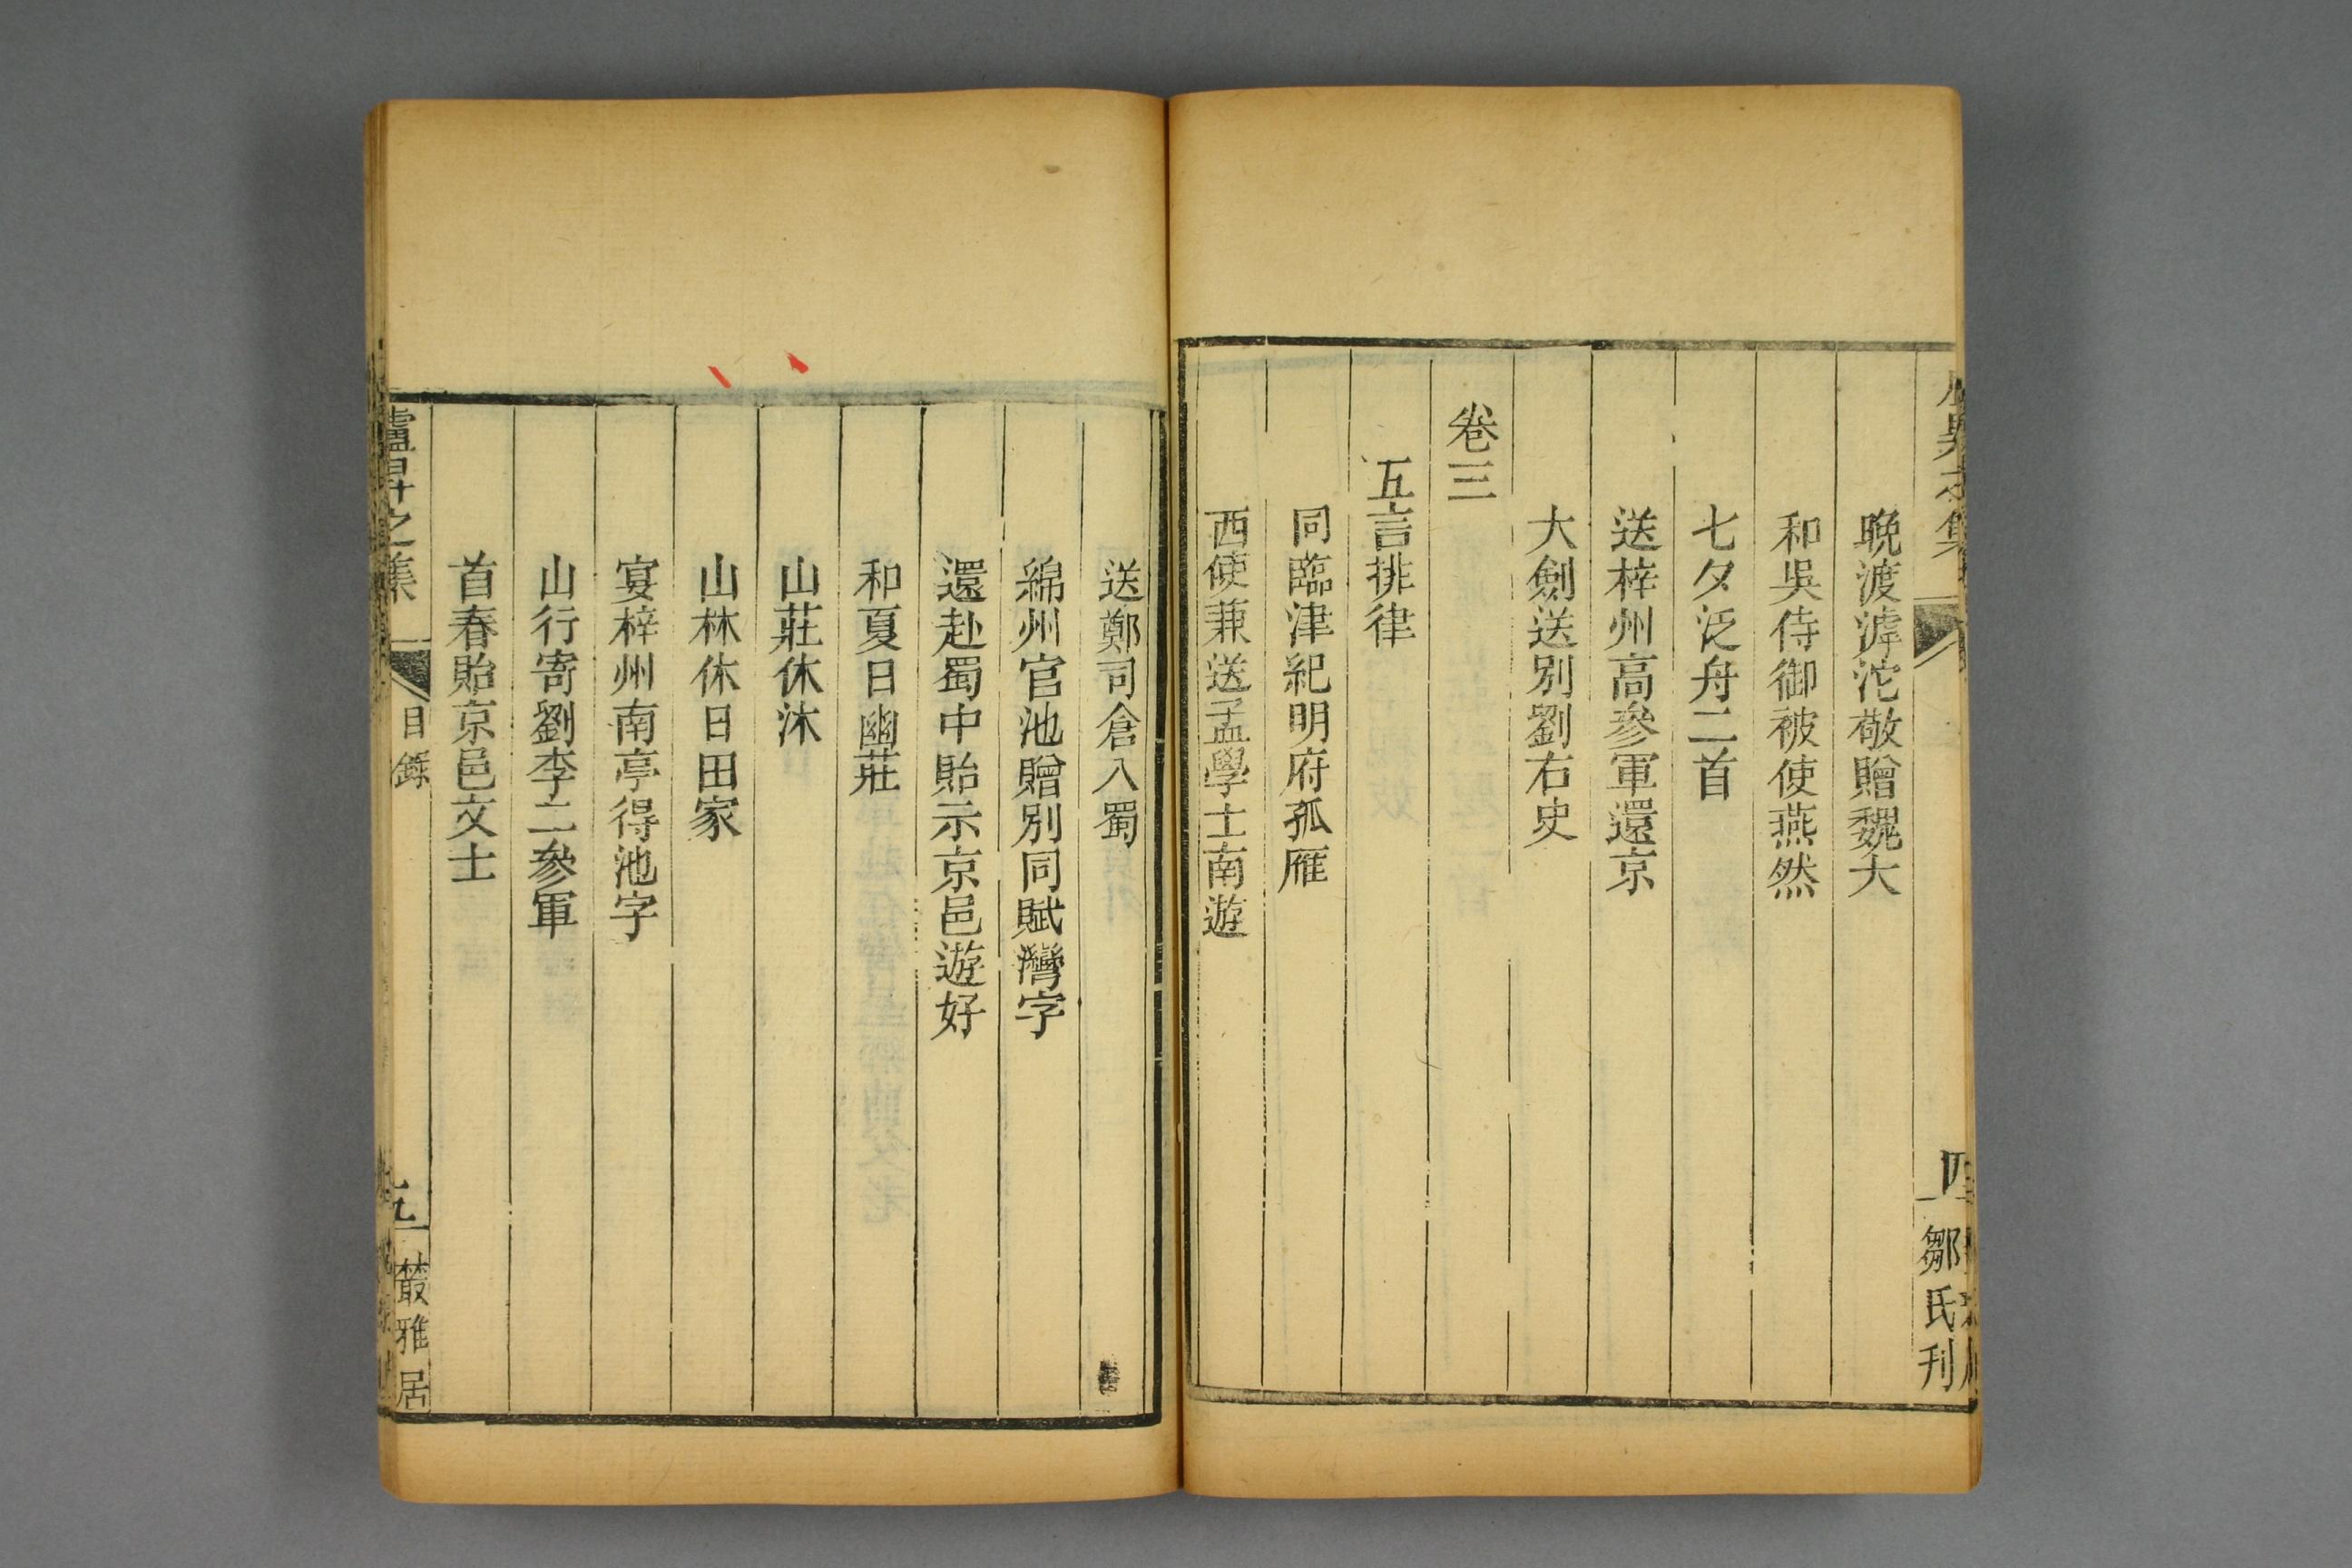 晚渡滹沱敬贈魏大
和吳侍御被使燕然
七夕泛舟二首
送梓州高參軍還京
大劍送別劉右史
卷三
五言排律
同臨津紀明府孤雁
西使兼送孟學士南遊
四
鄒氏刊
送鄭司倉入蜀
綿州官池贈別同賦灣字
還赴蜀中貽示京邑遊好
和夏日幽莊
山莊休沐
山林休日田家
宴梓州南亭得池字
山行寄劉李二參軍
首春貽京邑文士
盧昇之集
目錄
五
叢雅居